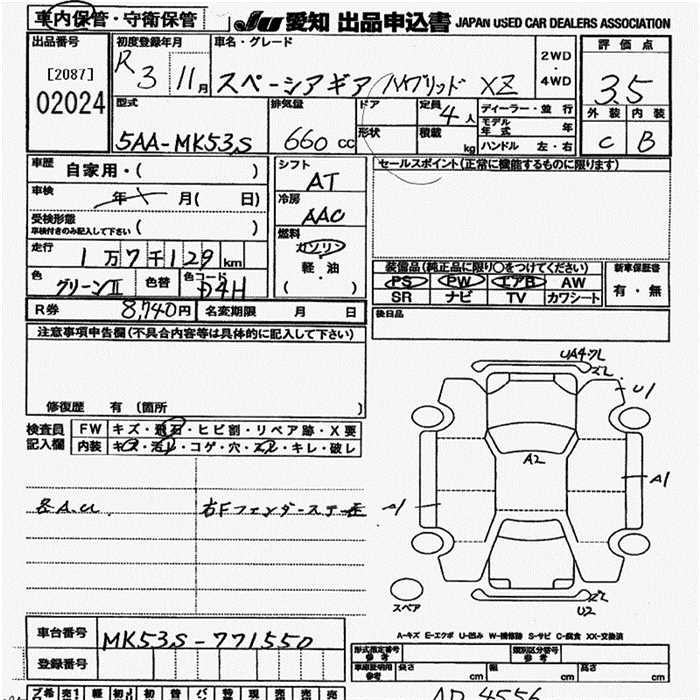 車内保管・守衛保管 JU 愛知 出品申込書 JAPAN USED CAR DEALERS ASSOCIATION
出品番号 初度登録年月 車名・グレード 評価点
[2087] R 3 11月 スペーシアギア ハイブリッド XZ 2WD・4WD 3.5
02024 型式 排気量 ドア 定員 4人 ディーラー・並行 外装 内装
形状 積載 kg モデル年式 年
5AA-MK53S 660cc ハンドル 左・右 C B
車歴 自家用・( ) シフト AT セールスポイント(正常に機能するものに限ります)
車検 年 月( 日) 冷房 AAC
受検形態 車検付きのみ記入して下さい ( )
燃料 ガソリン 軽・油 ( )
走行 1万7千129km
色 グリーンII 色替 色コード D4H
装備品(純正品に限り○をつけてください) 新車保証書
PS PW エアB AW 有・無
SR ナビ TV カワシート
R券 8,740円 名変期限 月 日 後日品
注意事項申告欄(不具合内容等は具体的に記入して下さい)
修復歴 有 (箇所 )
検査員記入欄 FW キズ・飛石・ヒビ割・リペア跡・X要
内装 キズ・汚レ・コゲ・穴・スレ・キレ・破レ
各A.U. 右Fフェンダーステー
UA4ワレ
ズレ
U1
A2
A1
A1
ズレ
U2
スペア
A-キズ E-エクボ U-凹み W-補修跡 S-サビ C-腐食 XX-交換済
車台番号 MK53S-771550
型式指定番号 参考 類別区分番号 参考
登録番号 車庫証明用 参考 長さ cm 幅 cm 高さ cm